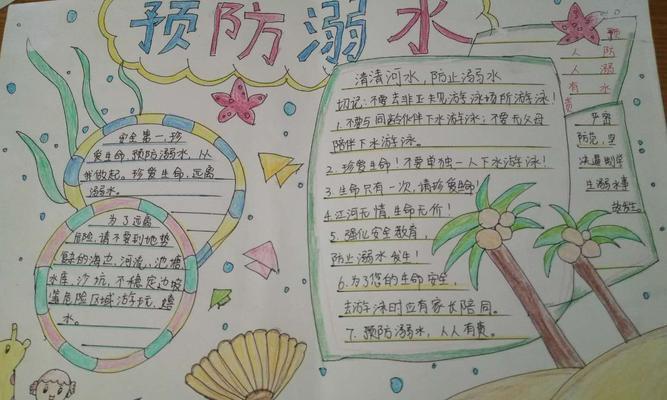 预防溺水
安全第一,珍
爱生命,预防溺水,从
我做起。珍爱生命,远离
溺水。
为了远离
危险,请不要到地势
的海边、河流、池塘
水库、沙坑,不稳定边坡
等危险区域游玩,嬉
水。
清清河水,防止溺水
切记:不要去非正规游泳场所游泳!
1.不要与同龄伙伴下水游泳;不要无父母
陪伴下水游泳。
2.珍爱生命!不要单独一人下水游泳!
3.生命只有一次,请珍爱生命!
4.江河无情,生命无价!
5.强化安全教育,
防止溺水发生!
6.为了您的生命安全,
去游泳时应有家长陪同。
7.预防溺水,人人有责。
预
人防
人溺
有水
责
严密
防范,坚
决遏制学
生溺水事
故发生。